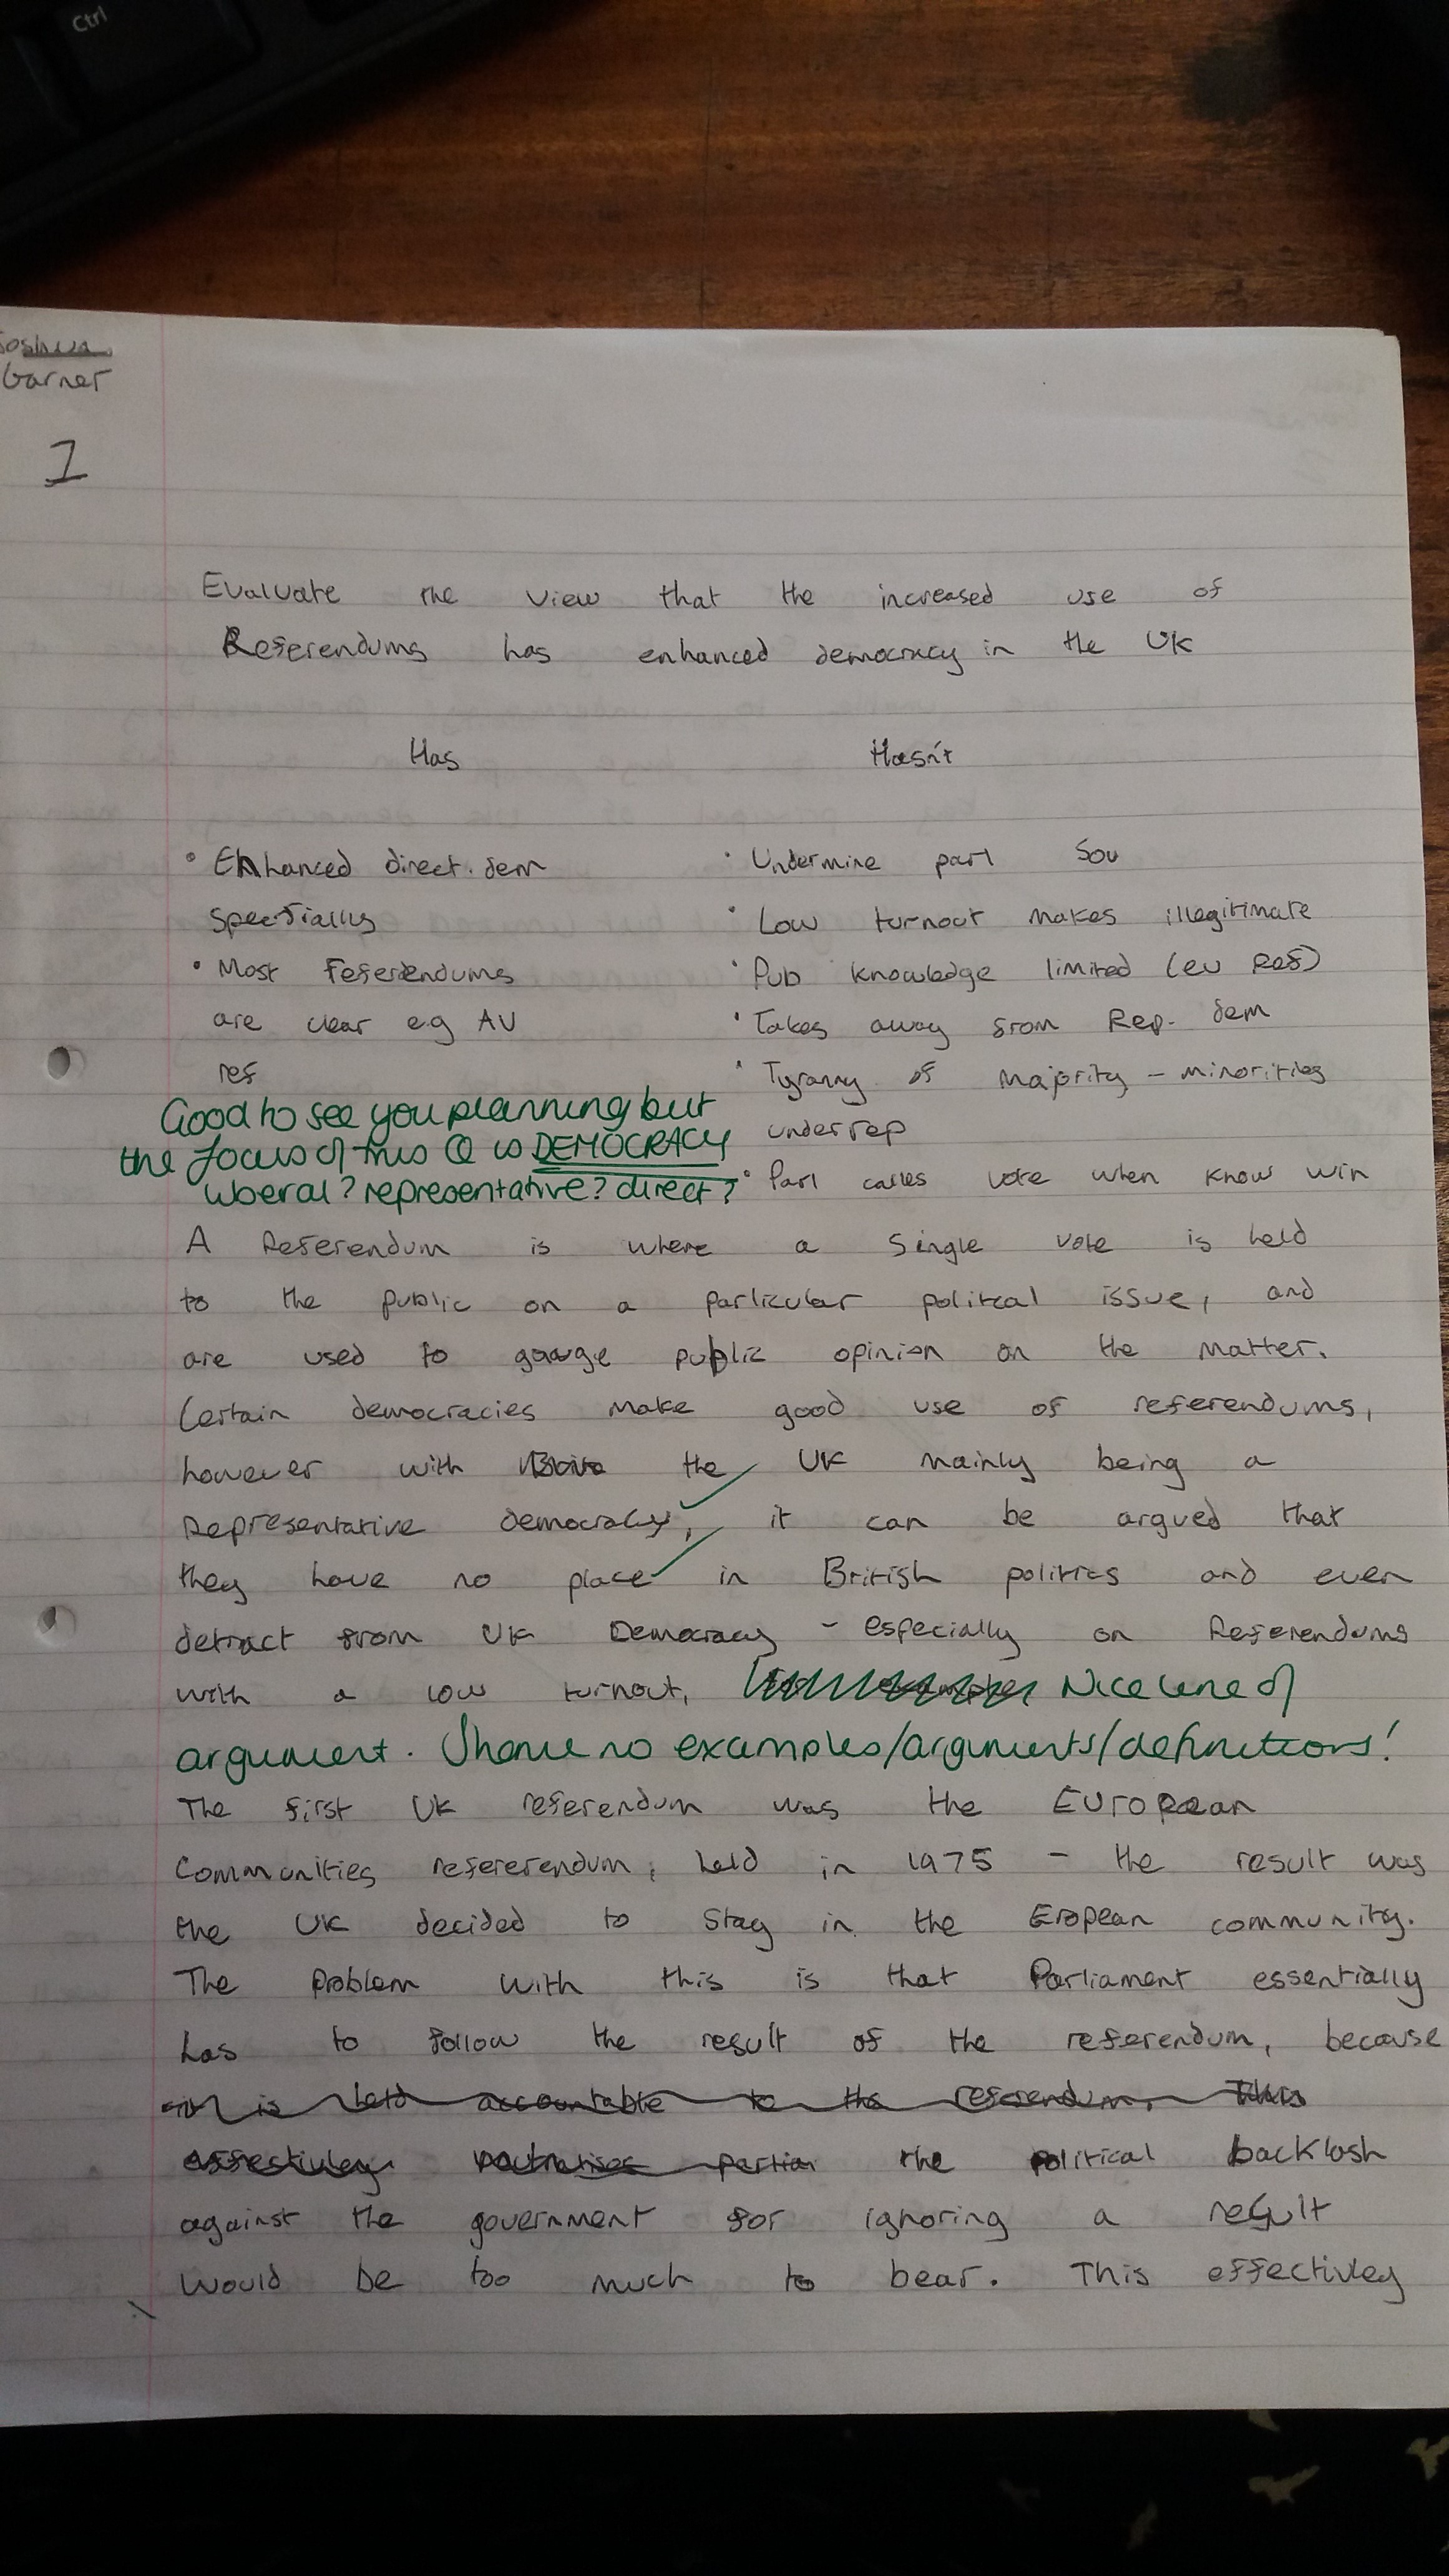 Ctrl
Joshua
Garner
1
Evaluate the view that the increased use of
Referendums has enhanced democracy in the UK
Has Hasn't
• Enhanced direct. dem • Undermine parl Sov
• Low turnout makes illegitimate
• Most Referendums • Pub knowledge limited (eu Ref)
are clear e.g AV • Takes away from Rep. dem
ref • Tyranny of majority - minorities
Good to see you planning but
the focus of this Q is DEMOCRACY underrep
liberal? representative? direct? • Parl calles vote when know win
A Referendum is where a single vote is held
to the public on a particular politcal issue, and
are used to gauge public opinion on the matter.
Certain democracies make good use of referendums,
however with the UK mainly being a
Representative democracy, it can be argued that
they have no place in British politics and even
detract from UK Democracy - especially on Referendums
with a low turnout, Nice line of
argument. Shame no examples/arguments/definitions!
The first UK referendum was the European
Communities refererendum, held in 1975 - the result was
the UK decided to stay in the Eropean community.
The problem with this is that Parliament essentially
has to follow the result of the referendum, because
is held accountable to the referendum. This
effectivley the political backlash
against the government for ignoring a result
would be too much to bear. This effectivley